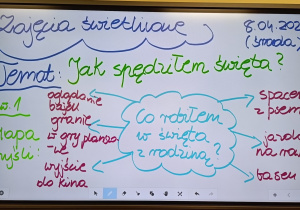 Zajęcia świetlicowe
8.04.202
(środa
Temat: Jak spędziłem święta?
w.1
mapa
myśli:
oglądanie
bajek
granie
w gry planszo
-we
wyjście
do kina
Co robiłem
w święta
z rodziną?
spacer
z psem
na ro
basen